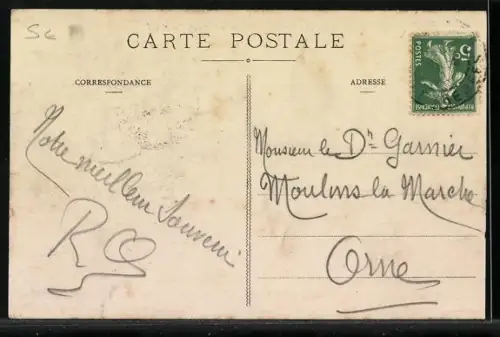 Sc
CARTE POSTALE
CORRESPONDANCE
ADRESSE
Notre meilleur Souvenir
Monsieur le Dr Garnier
Moulins la Marche
Orne
5c
POSTES
REPUBLIQUE FRANÇAISE